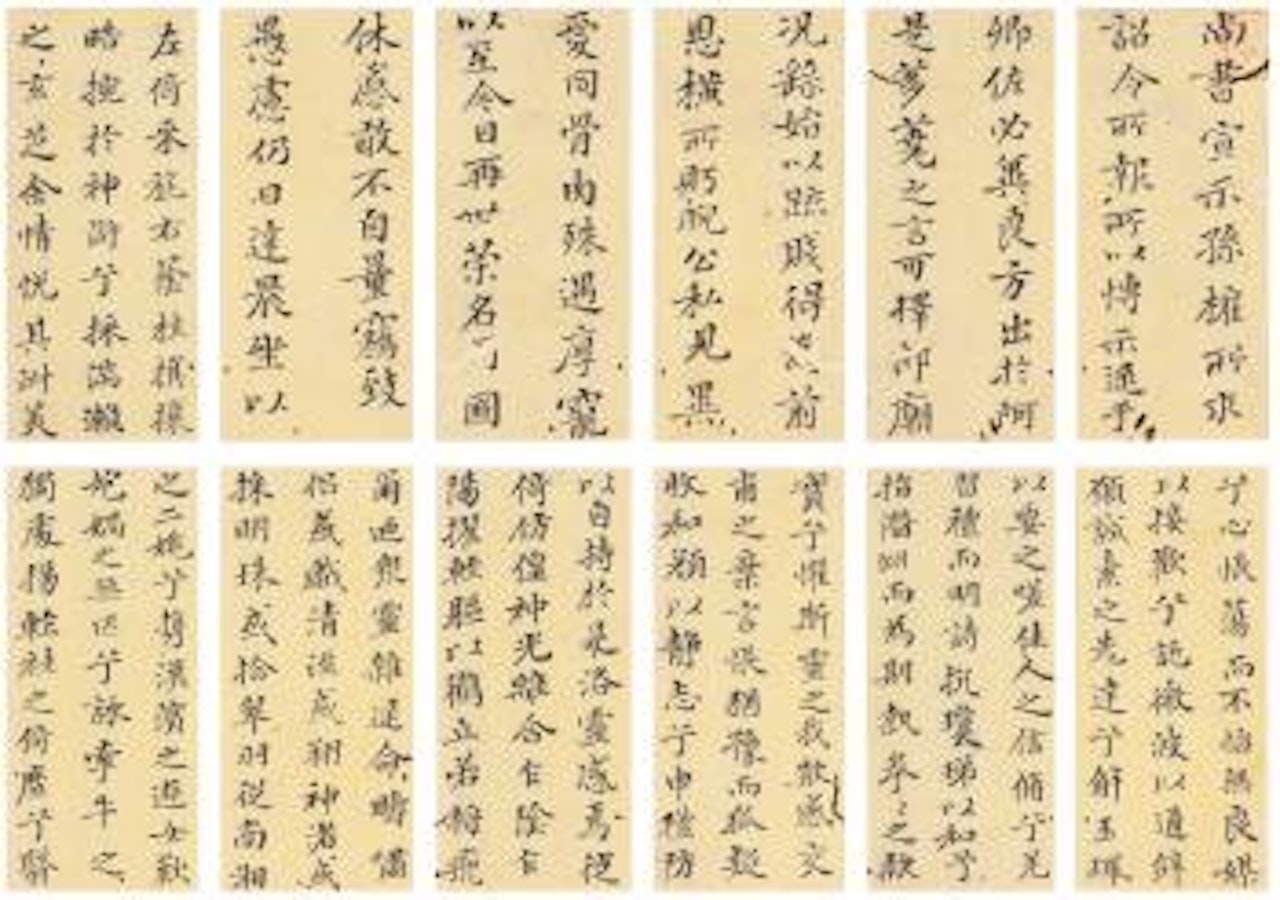 尚書宣示孫權所求
詔令所報所以博示逮于
卿佐必冀良方出於阿
是芻蕘之言可擇郎廟
况繇始以疏賤得為前
恩橫所眄睨公私見異
愛同骨肉殊遇厚寵
以至今日再世榮名同國
休慼敢不自量竊致
愚慮仍日達晨坐以
左倚采旄右蔭桂旗攘
皓捥於神滸兮採湍瀨
之玄芝余情悅其淑美
兮心悵蕩而不怡無良媒
以接歡兮託微波以通辭
願誠素之先達兮解玉珮
以要之嗟佳人之信脩兮羌
習禮而明詩抗瓊珶以和兮
指潛淵而為期執拳〻之款
實兮懼斯靈之我欺感交
甫之棄言悵猶豫而狐疑
收和顏以靜志兮申禮防
以自持於是洛靈感焉徙
倚傍偟神光離合乍陰乍
陽擢輕軀以鶴立若將飛
爾迺衆靈雜遝命疇嘯
侶或戲清流或翔神渚或
採明珠或拾翠羽從南湘
之二妃兮攜漢濱之遊女歎
匏媧之無匹兮詠牽牛之
獨處揚輕袿之倚靡兮翳